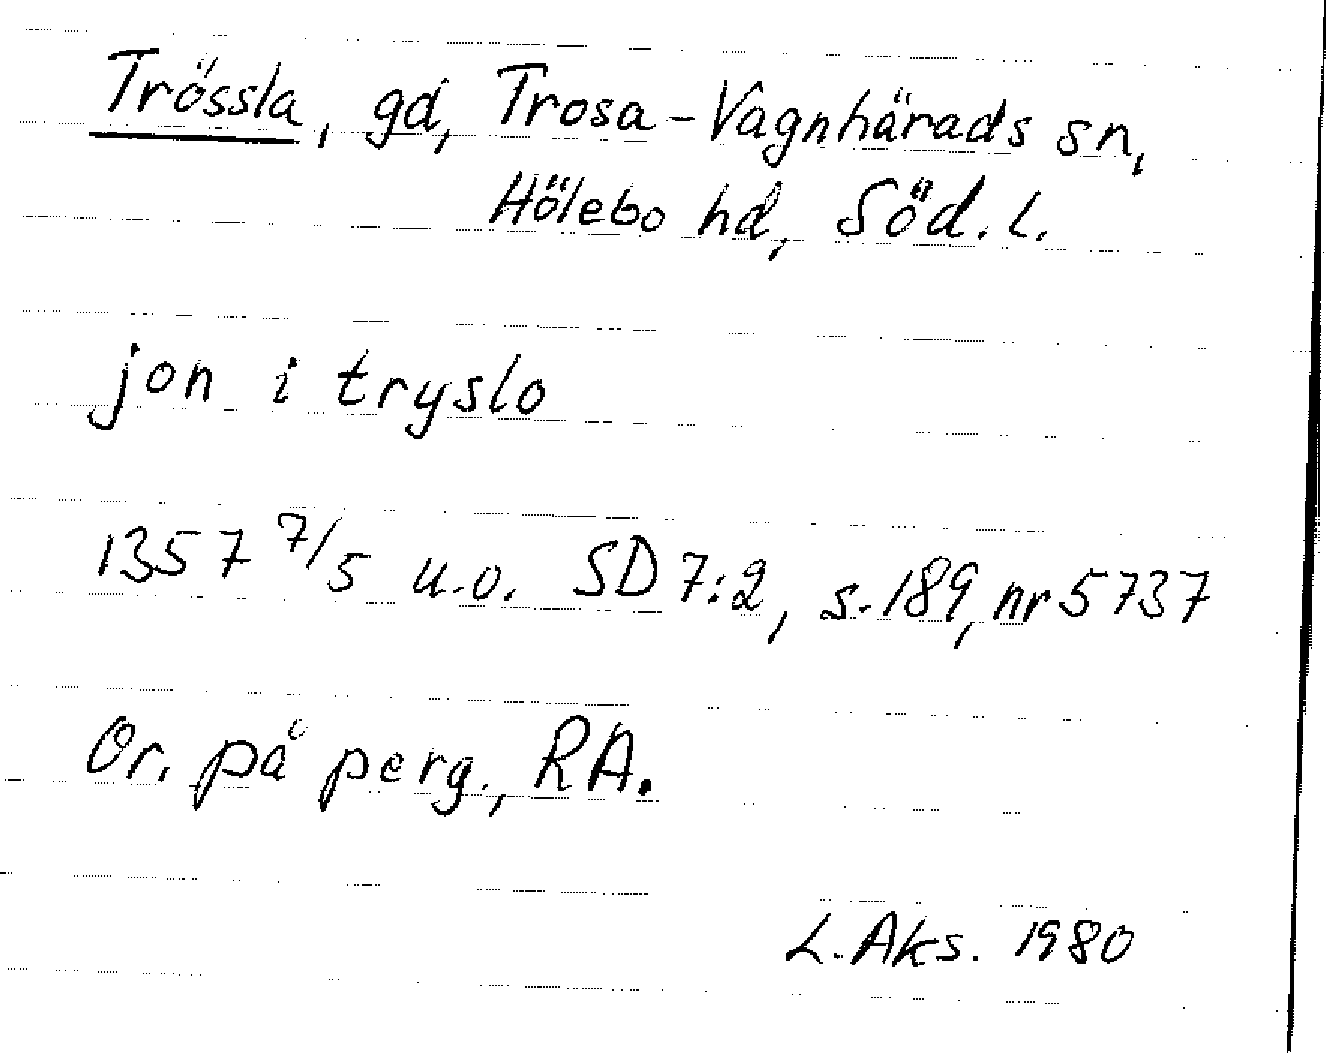 Trössla, gd, Trosa-Vagnhärads sn,
Hölebo hd, Söd. l.
jon i tryslo
1357 7/5 u.o. SD 7:2, s. 189, nr 5737
Or. på perg., RA.
L. Aks. 1980